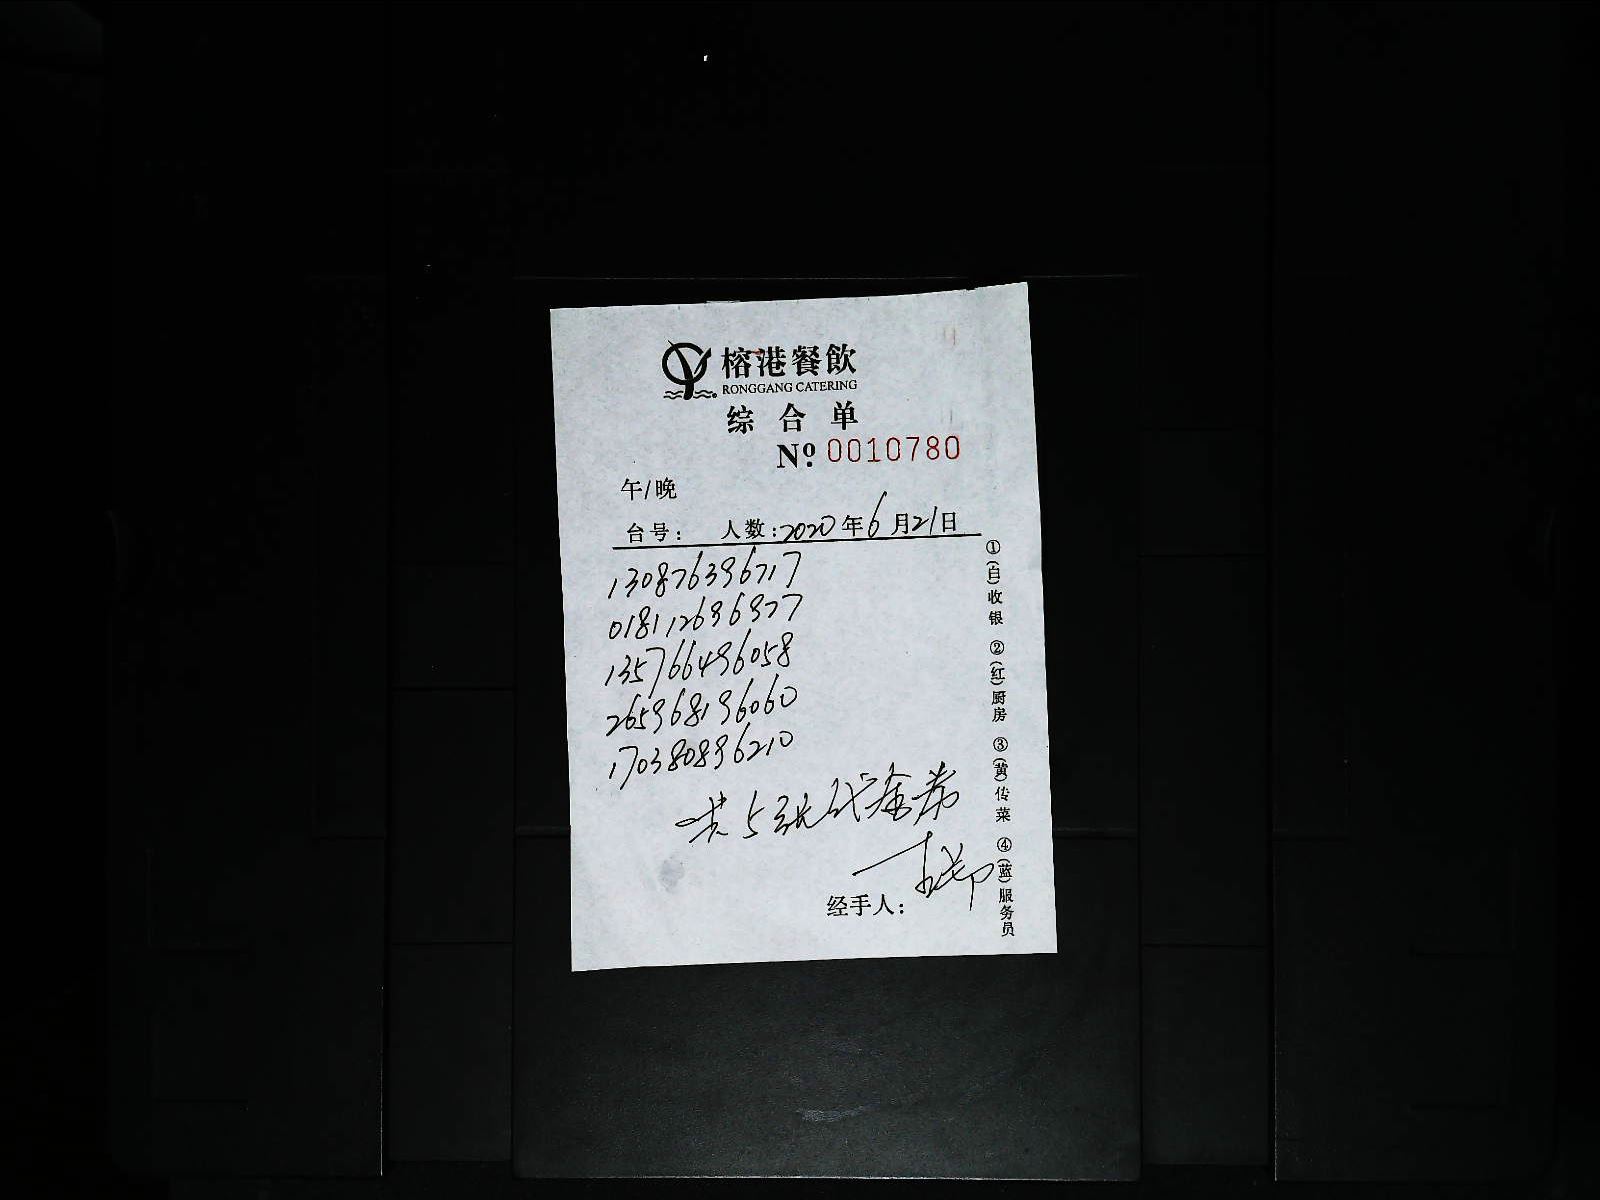 榕港餐飲
RONGGANG CATERING
综合单
Nº 0010780
午/晚
台号： 人数：2020年6月21日
130876396717
018112696977
135766496058
265968196060
170380896210
共5张代金券
经手人：
①(白)收银 ②(红)厨房 ③(黄)传菜 ④(蓝)服务员